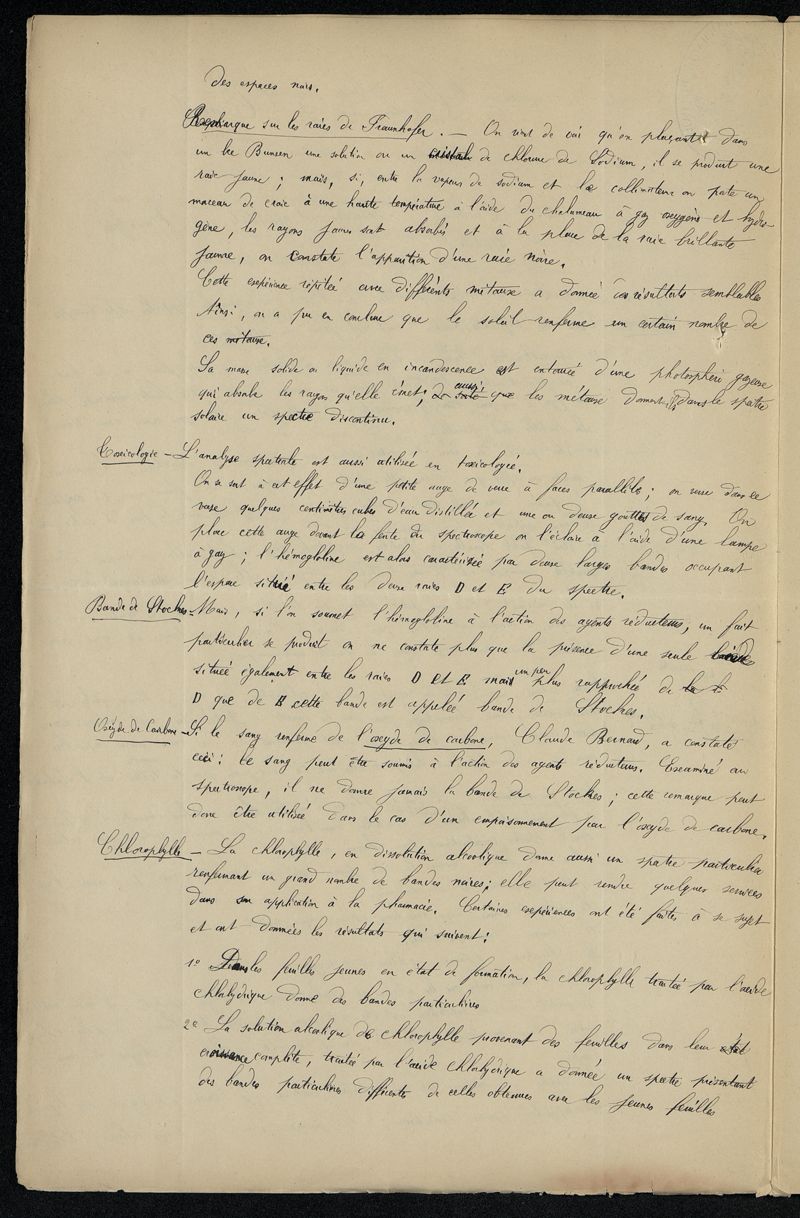 des espaces noirs.
Remarque sur les raies de Fraunhofer. — On vient de voir qu'en plaçant dans
un bec Bunsen une solution ou un cristal de chlorure de Sodium, il se produit une
raie jaune ; mais, si, entre la vapeur de sodium et le collimateur on porte un
morceau de craie à une haute température à l'aide du chalumeau à gaz oxygène et hydro-
gène, les rayons jaunes sont absorbés et à la place de la raie brillante
jaune, on constate l'apparition d'une raie noire.
Cette expérience répétée avec différents métaux a donnée des résultats semblables
Ainsi, on a pu en conclure que le soleil renferme un certain nombre de
ces métaux.
La masse solide ou liquide en incandescence est entourée d'une photosphère gazeuse
qui absorbe les rayons qu'elle émet ; aussi, les métaux donnent ils dans le spectre
solaire un spectre discontinu.
Toxicologie — L'analyse spectrale est aussi utilisée en toxicologie.
On se sert à cet effet d'une petite auge de verre à faces parallèles ; on verse dans ce
vase quelques centimètres cubes d'eau distillée et une ou deux gouttes de sang. On
place cette auge devant la fente du spectroscope on l'éclaire à l'aide d'une lampe
à gaz ; l'hémogloline est alors caractérisée par deux larges bandes occupant
l'espace situé entre les deux raies D et E du spectre.
Bande de Stockes — Mais, si l'on soumet l'hémogloline à l'action des agents réducteurs, un fait
particulier se produit on ne constate plus que la présence d'une seule bande
située également entre les raies D et E mais un peu plus rapprochée de
D que de E cette bande est appelée bande de Stockes.
Oxyde de Carbone — Si le sang renferme de l'oxyde de carbone, Claude Bernard, a constaté
ceci : Le sang peut être soumis à l'action des agents réducteurs. Examiné au
spectroscope, il ne donne jamais la bande de Stockes ; cette remarque peut
donc être utilisée dans le cas d'un empoisonnement par l'oxyde de carbone.
Chlorophylle — La chlorophylle, en dissolution alcoolique donne aussi un spectre particulier
renfermant un grand nombre de bandes noires ; elle peut rendre quelques services
dans son application à la pharmacie. Certaines expériences ont été faites à se sujet
et ont données les résultats qui suivent :
1° Dans les feuilles jeunes en état de formation, la chlorophylle traitée par l'acide
chlohydrique donne des bandes particulières
2° La solution alcoolique de chlorophylle provenant des feuilles dans leur état
croissance complète, traitée par l'acide chlohydrique a donnée un spectre présentant
des bandes particulières différentes de celles obtenues avec les jeunes feuilles